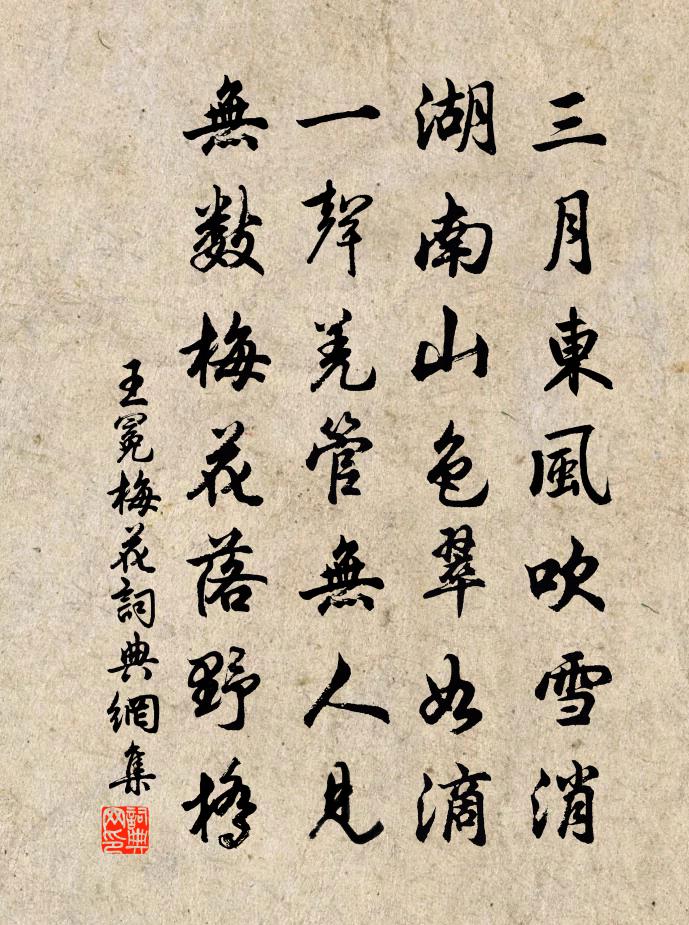 三月東風吹雪消
湖南山色翠如滴
一聲羌管無人見
無數梅花落野橋
王冕梅花詞典網集
詞典网印